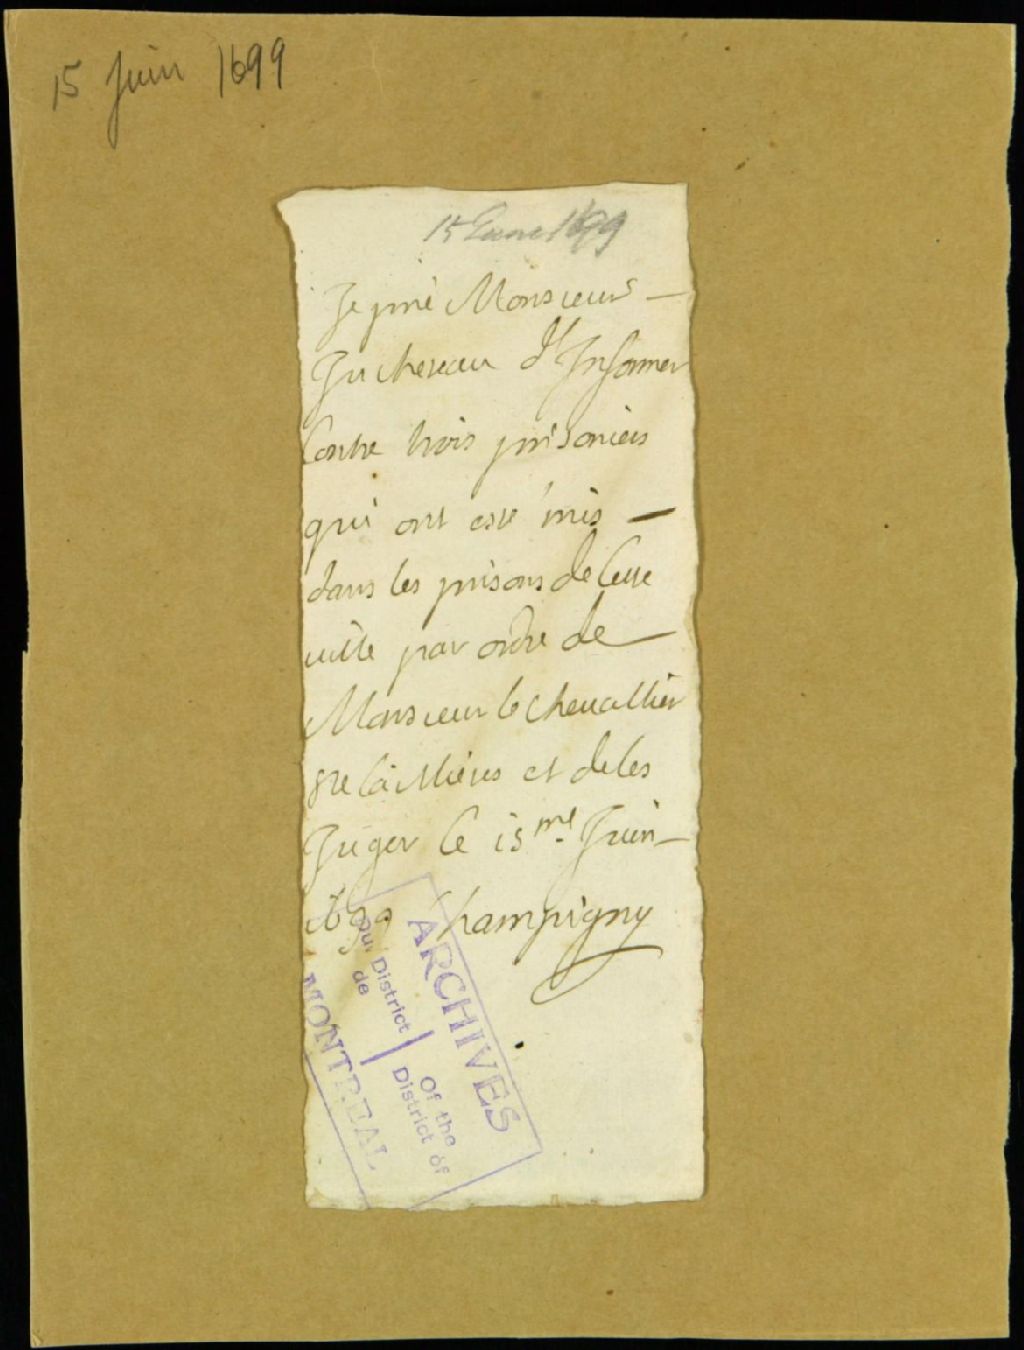 15 Juin 1699
15 June 1699
Je prie Monsieur
Juchereau d'Informer
Contre trois prisoniers
qui ont esté mis
dans les prisons de Cette
ville par ordre de
Monsieur le chevallier
Juger le 15me Juin
1699 Champigny
ARCHIVES
Du District
de
Of the
District of
MONTREAL